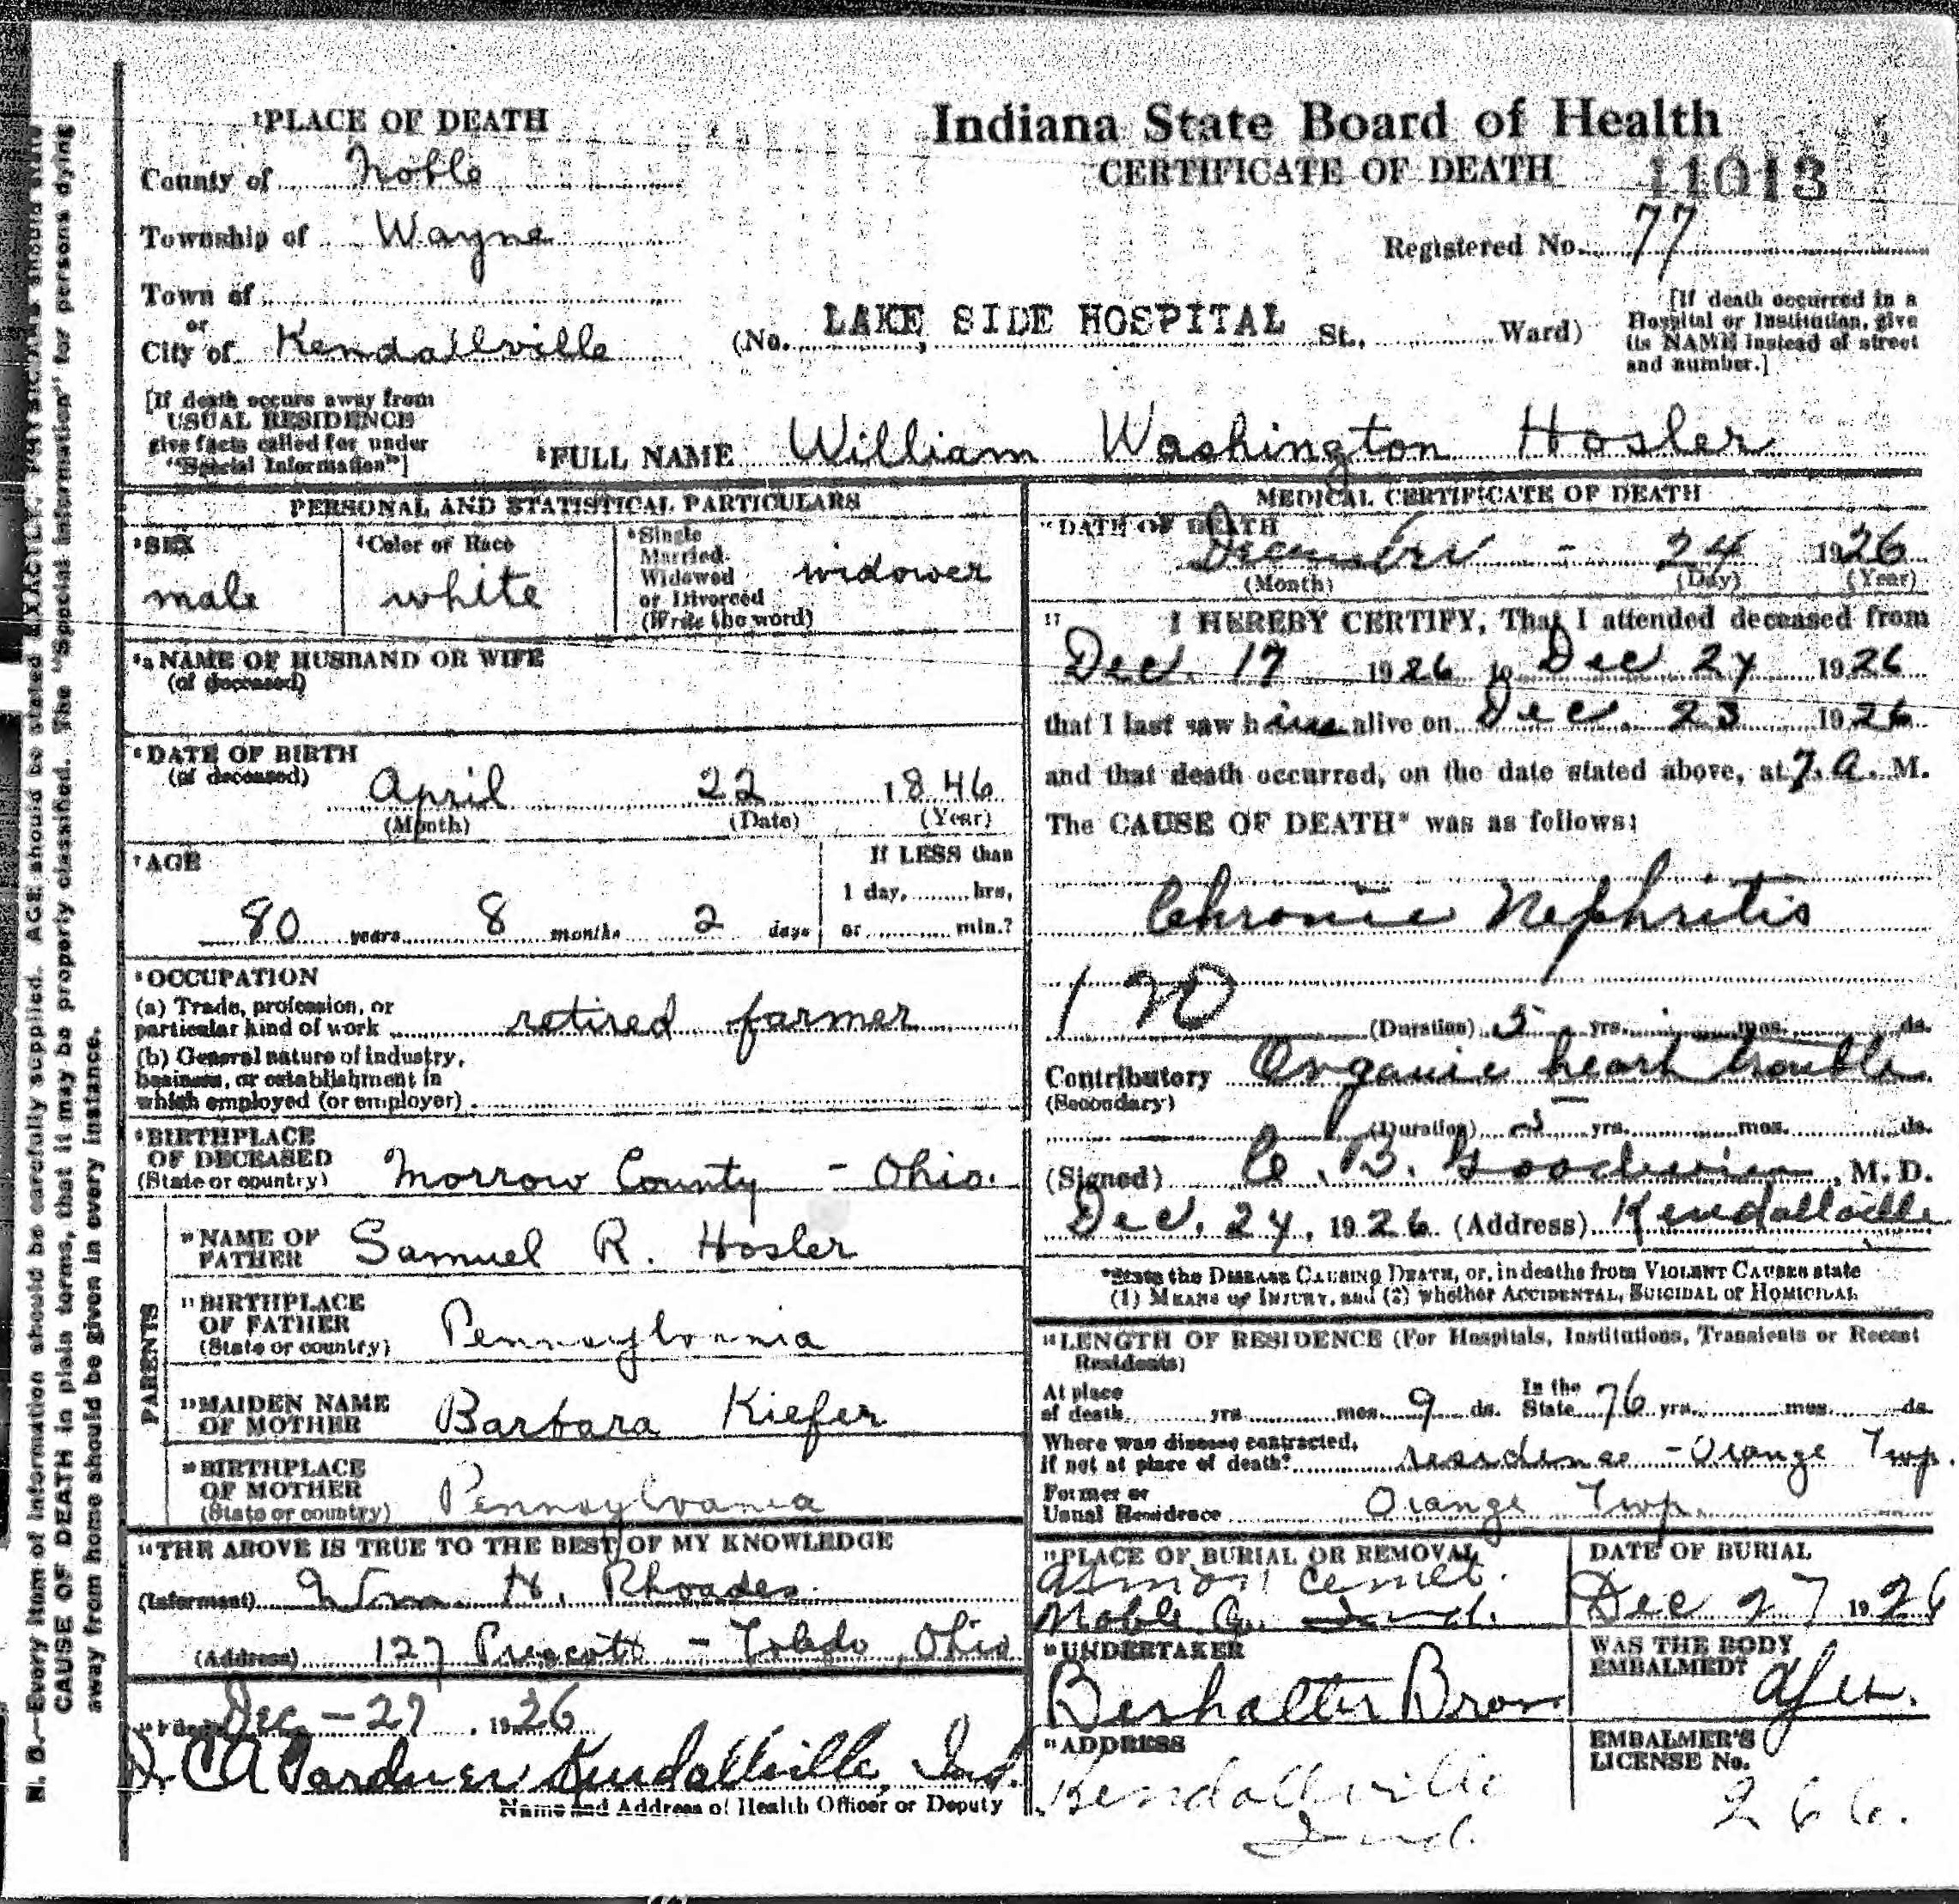 ¹PLACE OF DEATH
County of Noble
Township of Wayne
Town of
or
City of Kendallville
[If death occurs away from
USUAL RESIDENCE
give facts called for under
"Special Information"]
Indiana State Board of Health
CERTIFICATE OF DEATH 11013
Registered No. 77
(No. LAKE SIDE HOSPITAL St., Ward)
[If death occurred in a
Hospital or Institution, give
its NAME instead of street
and number.]
²FULL NAME William Washington Hosler
PERSONAL AND STATISTICAL PARTICULARS
³SEX
male
⁴Color or Race
white
⁵Single
Married
Widowed
or Divorced
(Write the word)
widower
⁵ᵃ NAME OF HUSBAND OR WIFE
(of deceased)
⁶DATE OF BIRTH
(of deceased)
April 22 1846
(Month) (Date) (Year)
⁷AGE
80 years 8 months 2 days
If LESS than
1 day, hrs,
or min.?
⁸OCCUPATION
(a) Trade, profession, or
particular kind of work retired farmer
(b) General nature of industry,
business, or establishment in
which employed (or employer)
⁹BIRTHPLACE
OF DECEASED
(State or country) Morrow County - Ohio.
PARENTS
¹⁰NAME OF
FATHER Samuel R. Hosler
¹¹BIRTHPLACE
OF FATHER
(State or country) Pennsylvania
¹²MAIDEN NAME
OF MOTHER Barbara Kiefer
¹³BIRTHPLACE
OF MOTHER
(State or country) Pennsylvania
¹⁴THE ABOVE IS TRUE TO THE BEST OF MY KNOWLEDGE
(Informant) Wm H. Rhoades
(Address) 127 Prescott - Toledo, Ohio
¹⁵Filed Dec - 27, 1926
C A Gardner Kendallville, Ind.
Name and Address of Health Officer or Deputy
MEDICAL CERTIFICATE OF DEATH
¹⁶DATE OF DEATH
December - 24 1926
(Month) (Day) (Year)
¹⁷ I HEREBY CERTIFY, That I attended deceased from
Dec. 17 1926 to Dec 24 1926
that I last saw him alive on Dec. 23 1926
and that death occurred, on the date stated above, at 7. a. M.
The CAUSE OF DEATH* was as follows:
Chronic Nephritis
(Duration) 5 yrs. mos. ds.
Contributory Organic heart trouble
(Secondary)
(Duration) 5 yrs. mos. ds.
(Signed) C. B. Goodwin, M. D.
Dec. 24, 1926 (Address) Kendallville
*State the DISEASE CAUSING DEATH, or, in deaths from VIOLENT CAUSES state
(1) MEANS OF INJURY, and (2) whether ACCIDENTAL, SUICIDAL or HOMICIDAL
¹⁸LENGTH OF RESIDENCE (For Hospitals, Institutions, Transients or Recent
Residents)
At place
of death yrs. mos. 9 ds. In the State 76 yrs. mos. ds.
Where was disease contracted,
if not at place of death? residence - Orange Twp.
Former or
Usual Residence Orange Twp.
¹⁹PLACE OF BURIAL OR REMOVAL
cemet.
Noble Co. Ind.
DATE OF BURIAL
Dec 27 1926
²⁰UNDERTAKER
Berhalter Bros
WAS THE BODY
EMBALMED?
Yes.
²¹ADDRESS
Kendallville
Ind.
EMBALMER'S
LICENSE No.
266.
N. B.—Every item of information should be carefully supplied. AGE should be stated EXACTLY. PHYSICIANS should state
CAUSE OF DEATH in plain terms, that it may be properly classified. The "Special Information" for persons dying
away from home should be given in every instance.